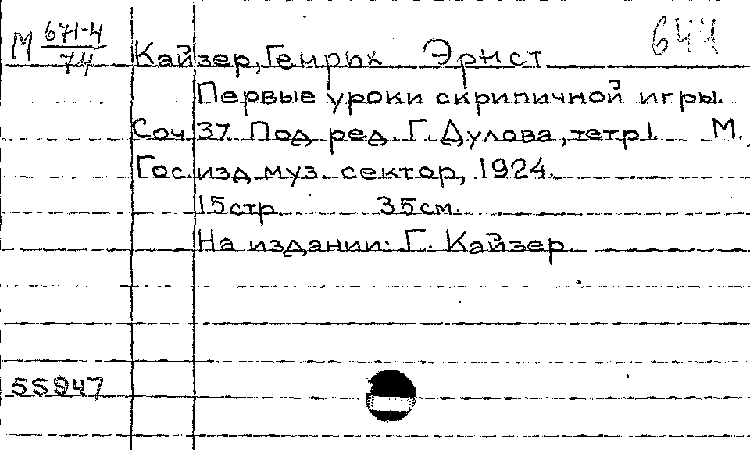 М 671-4/74
Кайзер, Генрих Эрнст 641
Первые уроки скрипичной игры.
Соч 37. Под ред. Г. Дулова, тетр 1. М.,
Гос. изд муз. сектор, 1924.
15 стр. 35 см.
На издании: Г. Кайзер.
55947